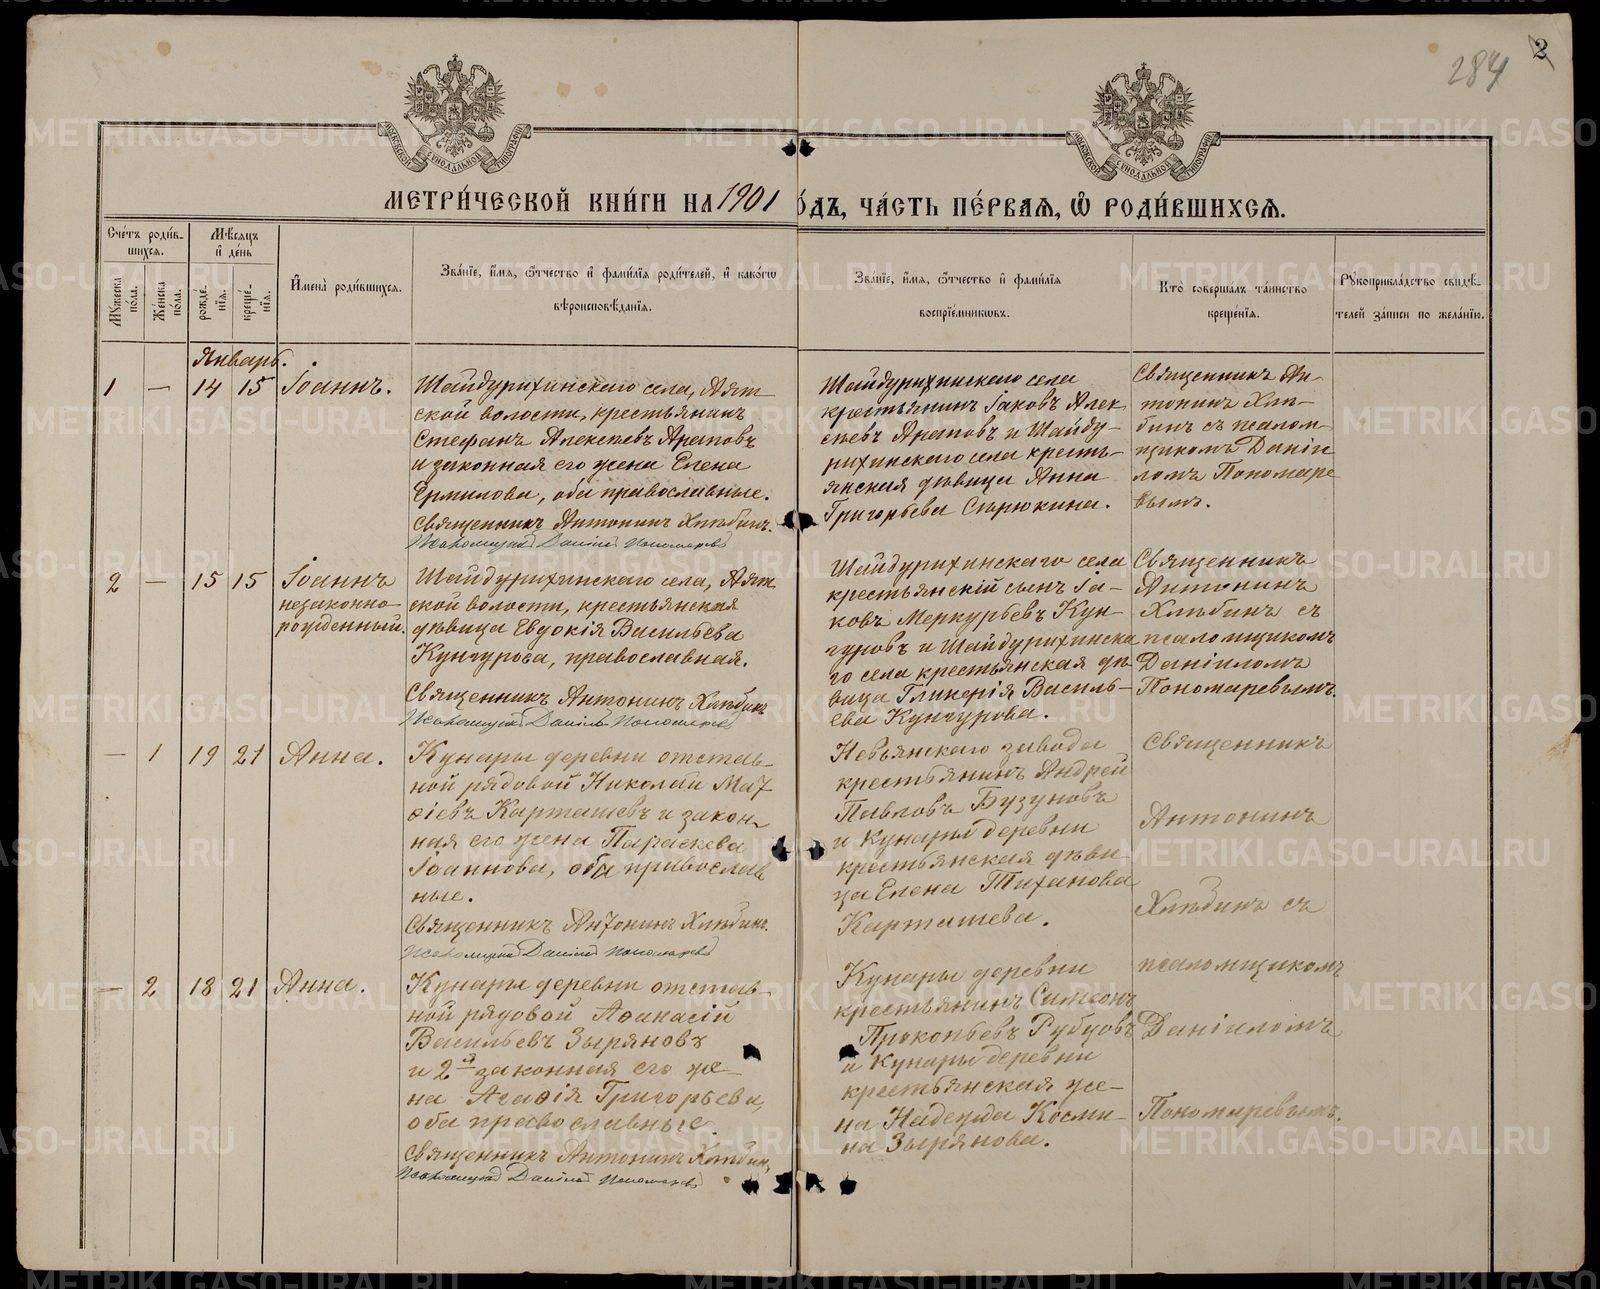 284
2
МОСКОВСКОЙ СѴНОДАЛЬНОЙ ТИПОГРАФІИ
МОСКОВСКОЙ СѴНОДАЛЬНОЙ ТИПОГРАФІИ
МЕТРИ́ЧЕСКОЙ КНИ́ГИ НА 1901 ГО́ДЪ, ЧА́СТЬ ПЕ́РВАѦ, Ѿ РОДИ́ВШИХСѦ.
Сче́тъ роди́в-
шихсѧ.
Мужеска
по́ла.
Же́нска
по́ла.
Мѣ́сѧцъ
и҆ де́нь
рожде́-
нїѧ.
креще́-
нїѧ.
И҆мена̀ роди́вшихсѧ.
Зва́нїе, и҆́мѧ, ѻ҆́тчество и҆ фами́лїѧ роди́телей, и҆ како́гѡ
вѣроисповѣ́данїѧ.
Зва́нїе, и҆́мѧ, ѻ҆́тчество и҆ фами́лїѧ
воспрїе́мникѡвъ.
Кто̀ соверша́лъ та́инство
креще́нїѧ.
Рꙋкоприкла́дство свидѣ́-
телей за́писи по жела́нїю.
Январь.
1 — 14 15 Іоаннъ.
Шайдурихинскаго села, Аят-
ской волости, крестьянинъ
Стефанъ Алексѣевъ Араповъ
и законная его жена Елена
Ермилова, оба православные.
Священникъ Антонинъ Хлѣбинъ.
Псаломщикъ Даніилъ Пономаревъ
Шайдурихинскаго села
крестьянинъ Іаковъ Алек
сѣевъ Араповъ и Шайду-
рихинскаго села кресть-
янская дѣвица Анна
Григорьева Сырюкина.
Священникъ Ан-
тонинъ Хлѣ-
бинъ съ псалом-
щикомъ Даніи
ломъ Пономаре
вымъ.
2 — 15 15 Іоаннъ
незаконно-
рожденный.
Шайдурихинскаго села, Аят
ской волости, крестьянская
дѣвица Евдокія Васильева
Кунгурова, православная.
Священникъ Антонинъ Хлѣбинъ
Псаломщикъ Даніилъ Пономаревъ
Шайдурихинскаго села
крестьянскій сынъ Іа-
ковъ Меркурьевъ Кун-
гуровъ и Шайдурихинска
го села крестьянская дѣ-
вица Гликерія Василь-
ева Кунгурова.
Священникъ
Антонинъ
Хлѣбинъ съ
псаломщикомъ
Даніиломъ
Пономаревымъ.
— 1 19 21 Анна.
Кунары деревни отстав-
ной рядовой Николай Мат
ѳіевъ Карташевъ и закон-
ная его жена Параскева
Іоаннова, оба православ
ные.
Священникъ Антонинъ Хлѣбинъ.
Псаломщикъ Даніилъ Пономаревъ
Невьянскаго завода
крестьянинъ Андрей
Павловъ Бузуновъ
и Кунары деревни
крестьянская дѣви-
ца Елена Тиханова
Карташева.
Священникъ
Антонинъ
Хлѣбинъ съ
— 2 18 21 Анна.
Кунары деревни отстав-
ной рядовой Аѳанасій
Васильевъ Зыряновъ
и 2я законная его же-
на Агаѳія Григорьева,
оба православные.
Священникъ Антонинъ Хлѣбинъ,
Псаломщикъ Даніилъ Пономаревъ
Кунары деревни
крестьянинъ Симеонъ
Прокопьевъ Рубцовъ
и Кунары деревни
крестьянская же-
на Надежда Косми-
на Зырянова.
псаломщикомъ
Даніиломъ
Пономаревымъ.
METRIKI.GASO-URAL.RU